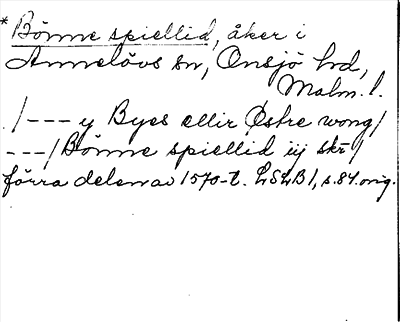 * Bönne spiellid, åker i
Annelövs sn, Onsjö hd,
Malm. l.
/--- y Byes ellir Østre wong/
---/ Bönne spiellid iij skr /
förra delen av 1570-t. LSLB I, s. 84. orig.